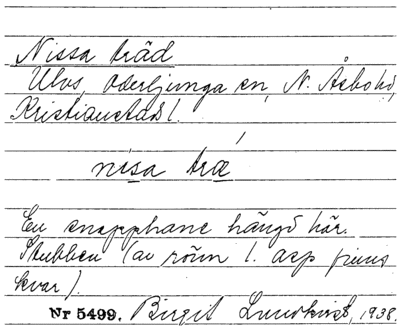 Nissa träd
Ulvs, Oderljunga sn, N. Åsbo hd,
Kristianstads l.
nisa træ
En snapphane hängd här.
Stubben (av rönn l. asp finns
kvar).
Nr 5499. Birgit Lundkvist, 1938.